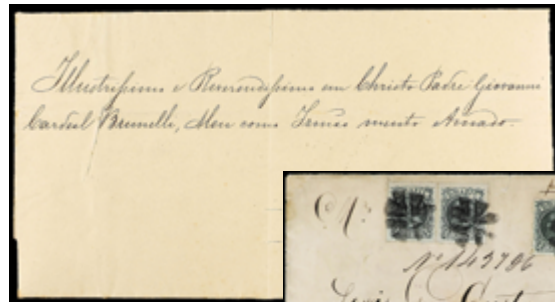 Illustrissimo e Reverendissimo em Christo Padre Giovanni
Cardeal Brunelli, Meu como Irmão muito Amado.
Nº 143786